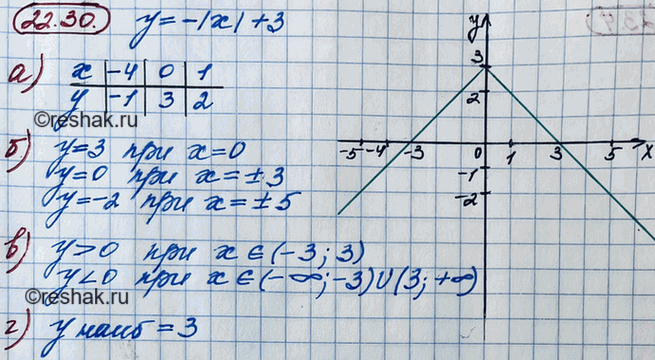 22.30. y=-|x|+3
а) x | -4 | 0 | 1
y | -1 | 3 | 2
©reshak.ru
б) y=3 при x=0
y=0 при x=±3
y=-2 при x=±5
в) y>0 при x∈(-3; 3)
y<0 при x∈(-∞;-3)∪(3;+∞)
©reshak.ru
г) y наиб = 3
y
3
2
-5 -4 -3 0 1 3 5 x
-1
-2